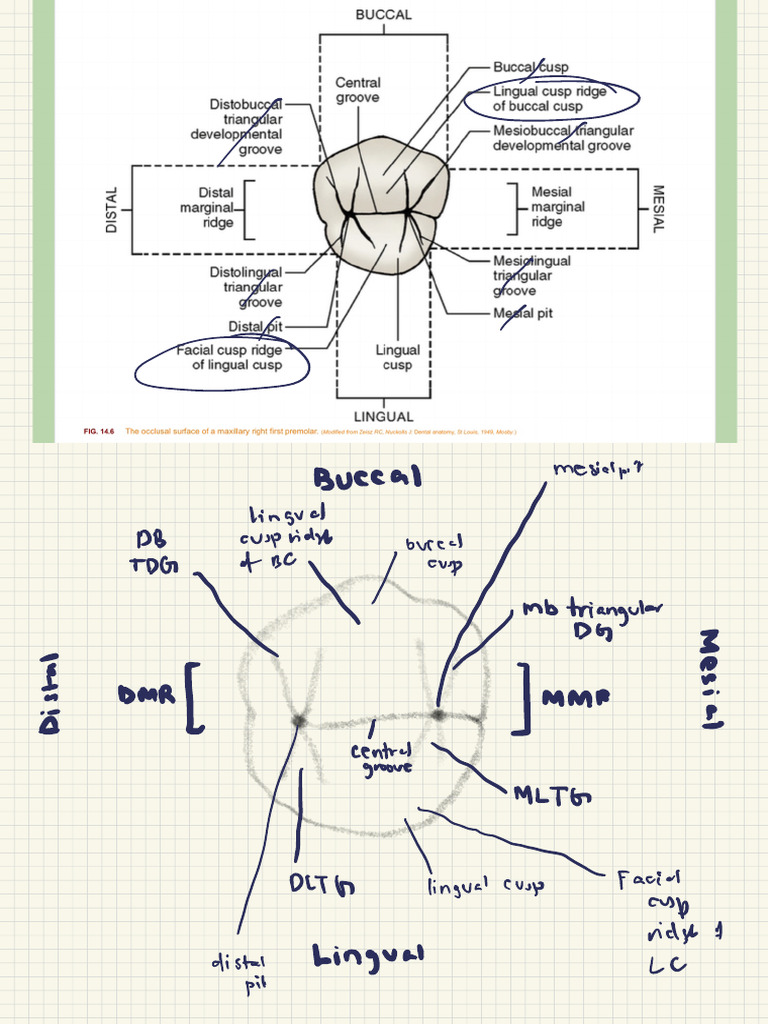 BUCCAL
Buccal cusp
Central
groove
Lingual cusp ridge
of buccal cusp
Distobuccal
triangular
developmental
groove
Mesiobuccal triangular
developmental groove
DISTAL
Distal
marginal
ridge
Mesial
marginal
ridge
MESIAL
Distolingual
triangular
groove
Mesiolingual
triangular
groove
Mesial pit
Distal pit
Facial cusp ridge
of lingual cusp
Lingual
cusp
LINGUAL
FIG. 14.6 The occlusal surface of a maxillary right first premolar. (Modified from Zeisz RC, Nuckolls J: Dental anatomy, St Louis, 1949, Mosby.)
Buccal
mesial pit
lingual
cusp ridge
of BC
DB
TDG
buccal
cusp
mb triangular
DG
Distal
DMR
MMR
Mesial
central
groove
MLTG
DLTG
lingual cusp
Facial
cusp
ridge f
LC
distal
pit
Lingual